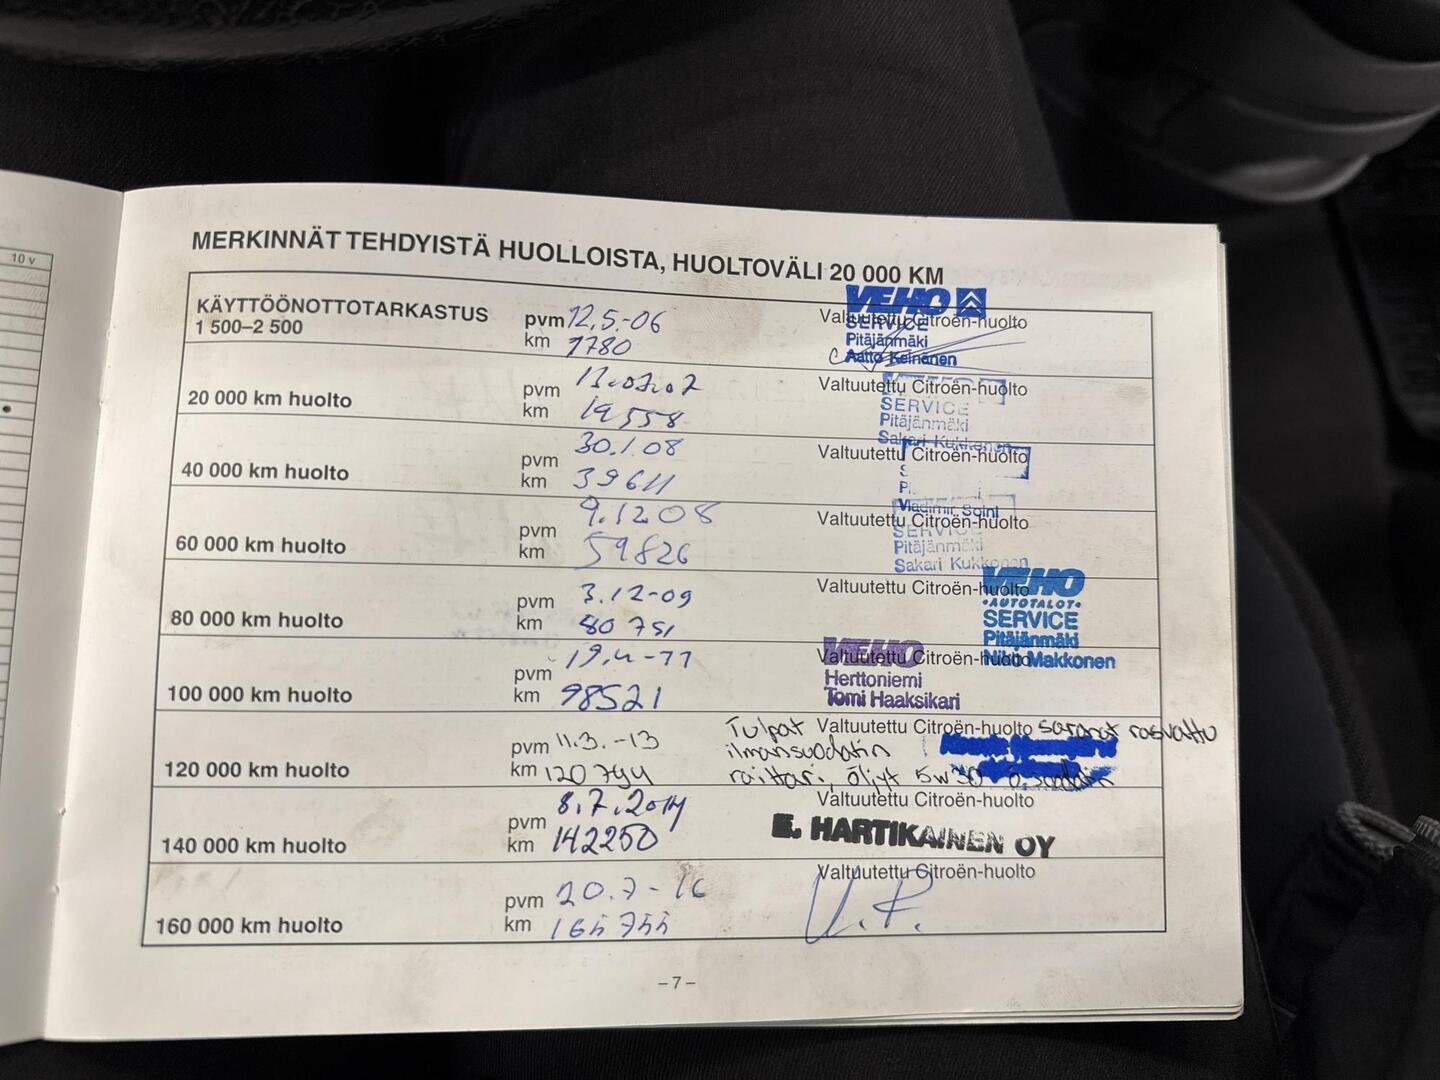 10 v
MERKINNÄT TEHDYISTÄ HUOLLOISTA, HUOLTOVÄLI 20 000 KM
KÄYTTÖÖNOTTOTARKASTUS
1 500–2 500
pvm 12.5.-06
km 1780
Valtuutettu Citroën-huolto
VEHO
SERVICE
Pitäjänmäki
Aatto Keinänen
20 000 km huolto
pvm 12.07.07
km 19558
Valtuutettu Citroën-huolto
SERVICE
Pitäjänmäki
Sakari Kukkonen
40 000 km huolto
pvm 30.1.08
km 39611
Valtuutettu Citroën-huolto
Vladimir Soini
60 000 km huolto
pvm 9.12 08
km 59826
Valtuutettu Citroën-huolto
SERVICE
Pitäjänmäki
Sakari Kukkonen
80 000 km huolto
pvm 3.12-09
km 80 751
Valtuutettu Citroën-huolto
VEHO
•AUTOTALOT•
SERVICE
Pitäjänmäki
Niko Makkonen
100 000 km huolto
pvm 19.4-11
km 98521
Valtuutettu Citroën-huolto
VEHO
Herttoniemi
Tomi Haaksikari
120 000 km huolto
pvm 11.3.-13
km 120 794
Valtuutettu Citroën-huolto
Tulpat saranat rasvattu
ilmansuodatin
raittari, öljyt 5w30 ö.suodatin
140 000 km huolto
pvm 8.7.2014
km 142250
Valtuutettu Citroën-huolto
E. HARTIKAINEN OY
160 000 km huolto
pvm 20.7-16
km 165755
Valtuutettu Citroën-huolto
– 7 –